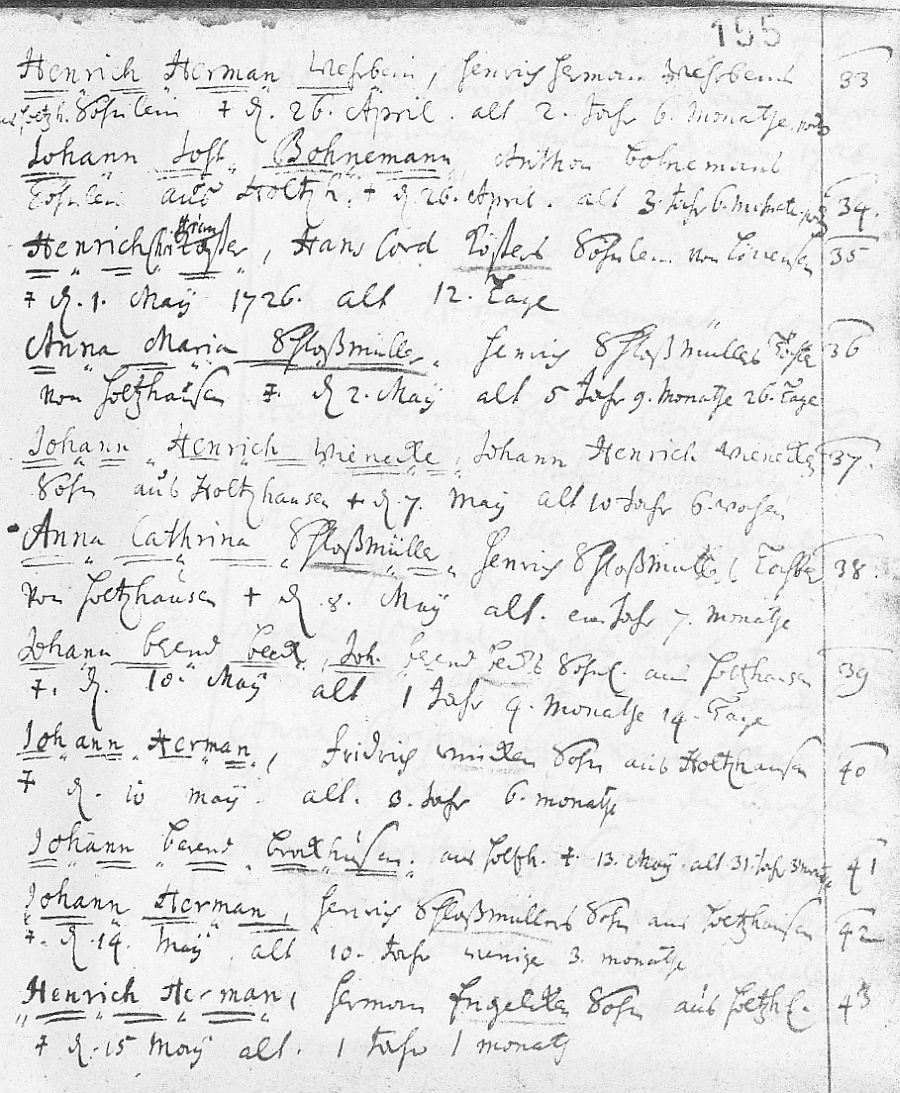 195
Henrich Herman Wehrbein, Henrich Herman Wehrbeins 33
aus Holtzh. Söhnlein † d. 26. April. alt 2. Jahr 6. Monathe
Johann Jost Bohnemann Anthon Bohnemans
Söhnlein aus Holtzh. † d 26. April. alt 3 Jahr 6. Monathe 34.
Henrich Christian Cöster, Hans Cord Cösters Söhnlein von Löwensen 35
† d. 1. Maÿ 1726. alt 12. Tage
Anna Maria Schloßmüller Henrich Schloßmüllers Tochter 36
von Holtzhausen †. d 2. Maÿ alt 5 Jahr 9. Monathe 26. Tage
Johann Henrich Wienecke, Johann Henrich Wienecken 37.
Sohn aus Holtzhausen † d. 7. Maÿ alt 10 Jahr 6. wochen
Anna Cathrina Schloßmülle Henrich Schloßmüllers Tochter 38.
von Holtzhausen † d. 8. Maÿ alt. ein Jahr 7. Monathe
Johann berend beck, Joh. berend becks Söhnl. aus Holtzhausen 39
†. d. 10. Maÿ alt 1 Jahr 9. Monathe 14. Tage
Johann Herman, Fridrich Sohn aus Holtzhausen 40
† d. 10 maÿ. alt. 3. Jahr 6. monathe
Johann berend brockhusen. aus Holtzh. †. 13. Maÿ. alt 31. Jahr 3 monathe 41
Johann Herman, Henrich Schloßmüllers Sohn aus Holtzhausen 42
†. d. 14. Maÿ alt 10. Jahr wenige 3. monathe
Henrich Herman, Herman Engelcken Sohn aus Holtzh. 43
† d. 15 Maÿ alt. 1 Jahr 1 monath